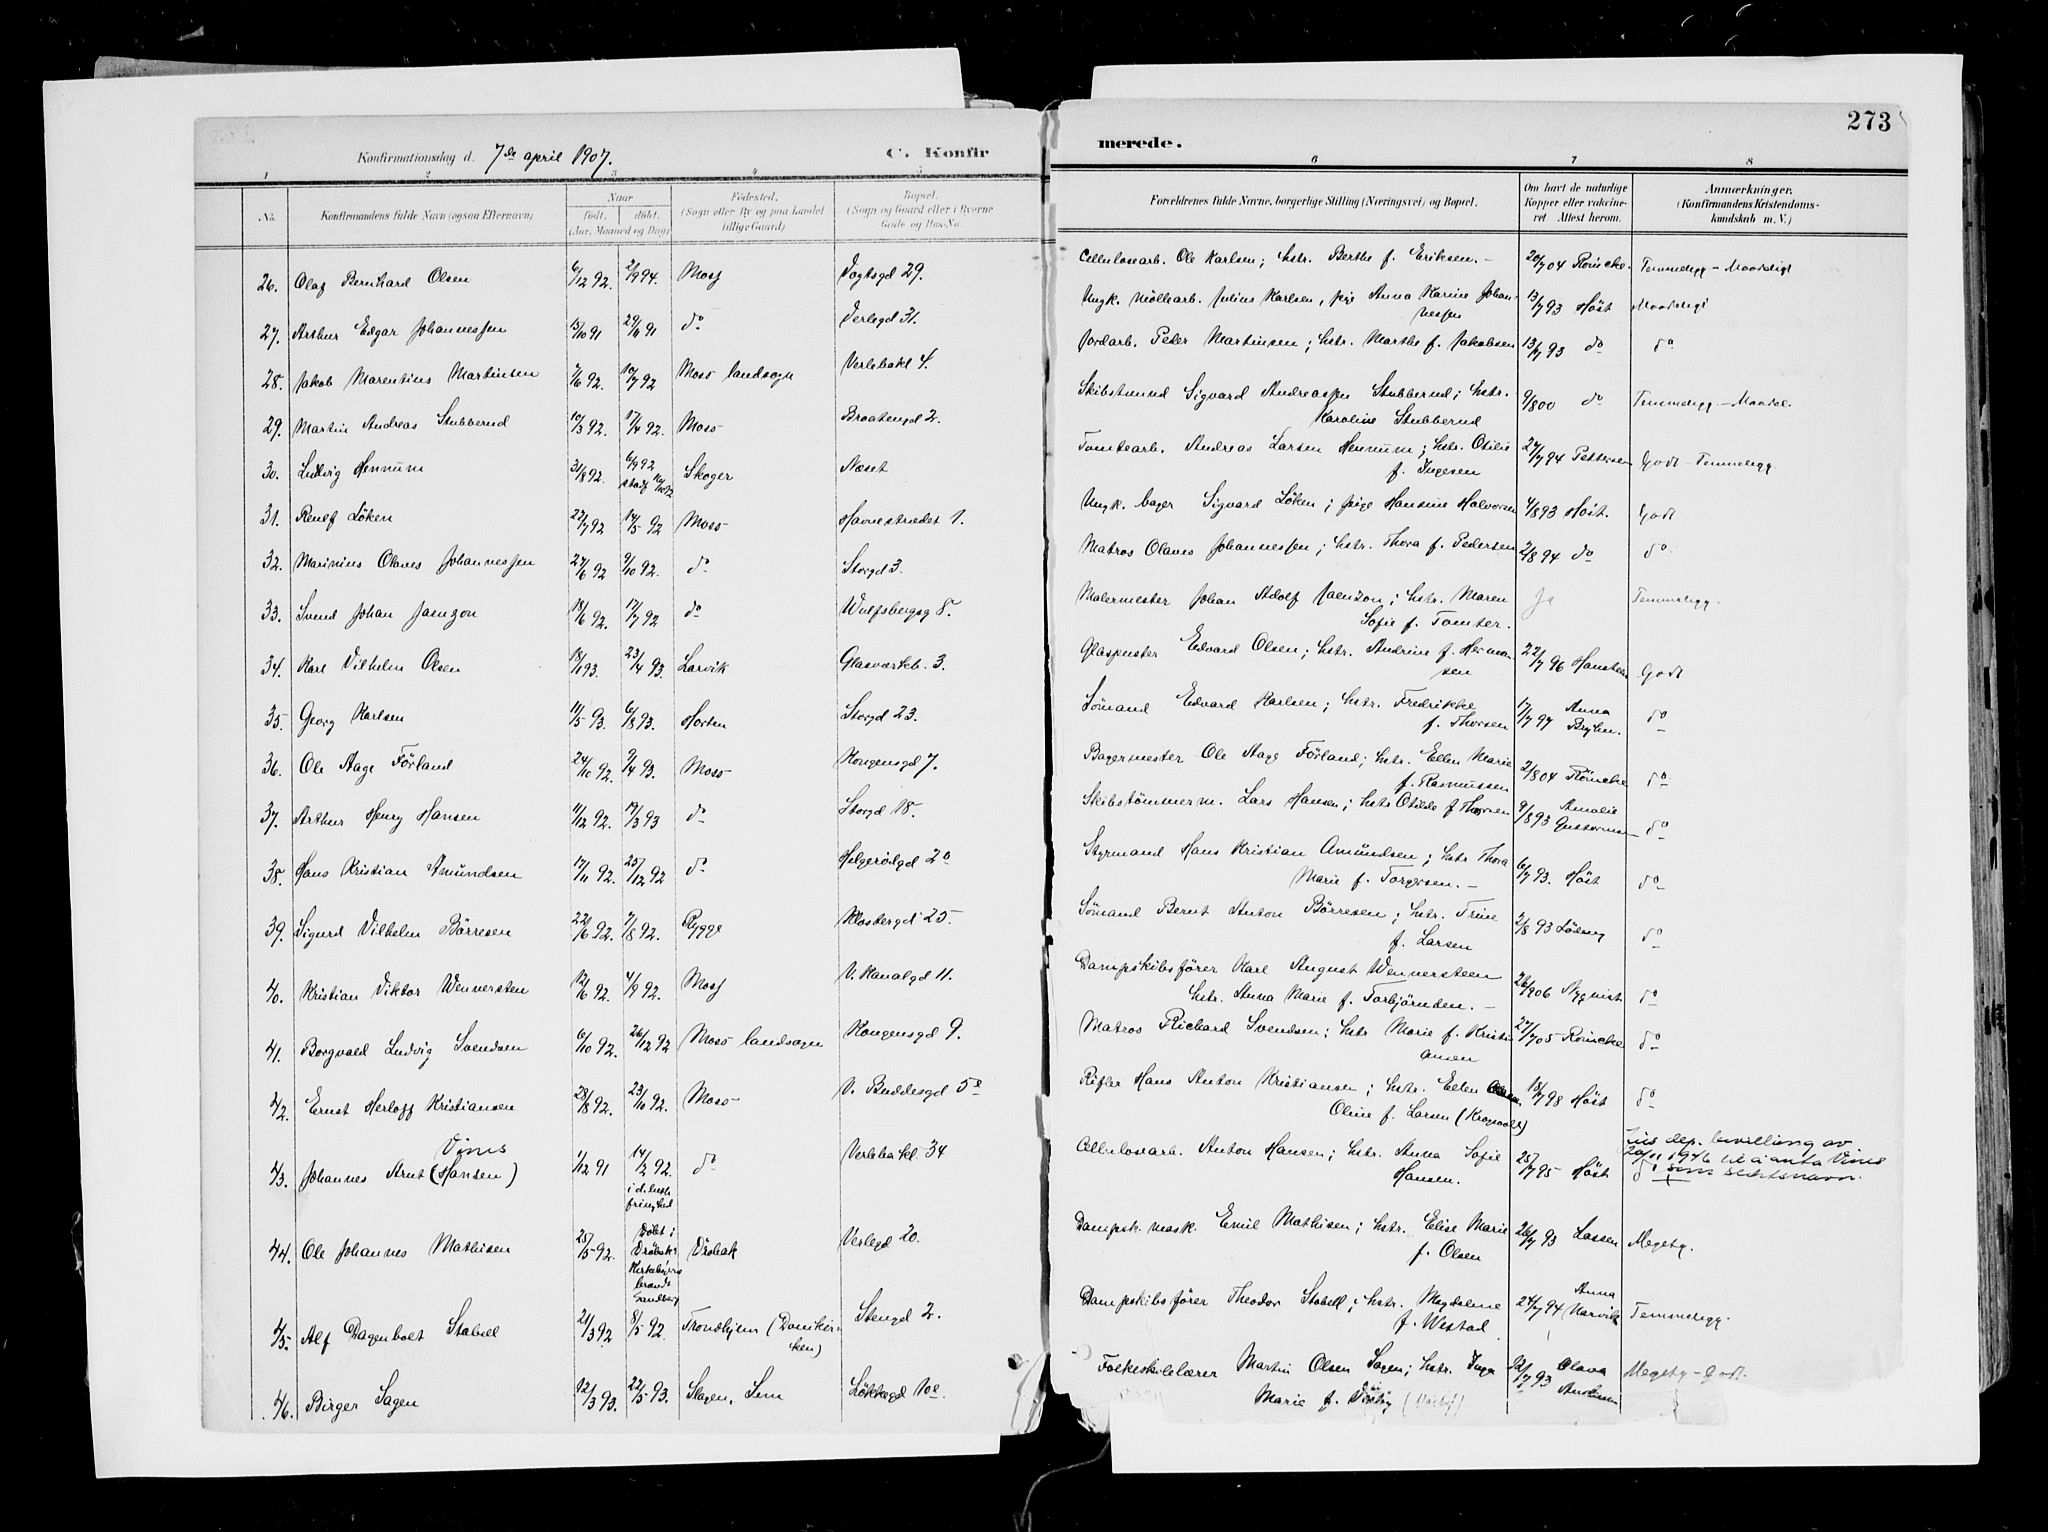 273
Konfirmationsdag d. 7de april 1907.
C. Konfir
merede.
1 2 3 4 5 6 7 8
No.
Konfirmandens fulde Navn (ogsaa Efternavn)
Naar
født. døbt.
(Aar, Maaned og Dag)
Fødested.
(Sogn eller By og paa Landet
tillige Gaard)
Bopæl.
(Sogn og Gaard eller i Byerne
Gade og Hus-No.
Forældrenes fulde Navne, borgerlige Stilling (Næringsvei) og Bopæl.
Om havt de naturlige
Kopper eller vakcine-
ret Attest herom.
Anmærkninger.
(Konfirmandens Kristendoms-
kundskab m. V.)
26. Olaf Bernhard Olsen 6/12 92. 2/9 94. Moss Vogtsgd 29. Cellulosearb. Ole Karlsen; hstr. Berthe f. Eriksen. 20/7 04 Röincke. Temmeligg - Maadeligt
27. Arthur Edgar Johannessen 15/10 91 29/11 91 do Verlegd 31. Ungk. möllearb. Julius Karlsen, pige Anna Karine Johan-
nessen 13/7 93 Höst Maadeligt
28. Jakob Marentius Martinsen 7/6 92. 10/7 92 Moss landsogn Verlebakl 4. Jordarb. Peder Martinsen; hstr. Marthe f. Jakobsen 13/7 93 do do
29. Martin Andreas Stubberud 10/3 92. 17/4 92. Moss Braatengd 2. Skibstmnd Sigvard Andreassen Stubberud; hstr.
Karoline Stubberud 9/8 00 do Temmeligg - Maadel.
30. Ludvig Hennum 31/8 92. 6/9 92 Skoger Næset Tomtearb. Andreas Larsen Hennum; hstr. Otilie
f. Ingesen 27/7 94 Pettersen Godt - Temmeligg
31. Reulf Löken 22/7 92 14/5 92 Moss Havnestrædet 1. Ungk. bager Sigvard Löken; pige Hansine Halvorsen 4/8 93 Höst. Godt
32. Marinius Olaves Johannessen 27/6 92 9/10 92. do Storgd 3. Matros Olaves Johannessen; hstr. Thora f. Pedersen 2/8 94 do do
33. Svend Johan Jaenzon 18/6 92. 17/7 92 do Wulfsbergsg 8. Malermester Johan Adolf Jaenzon; hstr. Maren
Sofie f. Tomter. Ja Temmeligg.
34. Karl Vilhelm Olsen 18/1 93. 23/4 93. Larvik Glasværkb. 3. Glaspuster Edvard Olsen; hstr. Andrine f. Herman-
sen 22/7 96 Hansteen Godt
35. Georg Karlsen 11/5 93. 6/8 93. Horten Storgd 23. Sömand Edvard Karlsen; hstr. Fredrikke
f. Thorsen 17/7 97 Anna do
36. Ole Aage Förland 24/10 92. 9/4 93. Moss Kongensgd 7. Bagermester Ole Aage Förland; hstr. Ellen Marie
f. Rasmussen 2/8 04 Röincke do
37. Arthur Henry Hansen 11/12 92. 19/3 93 do Storgd 18. Skibstömmerm. Lars Hansen; hstr Otilde f Thorsen 9/8 93 Amalie do
38. Hans Kristian Amundsen 17/11 92. 25/12 92 do Helgerödgd 2a Styrmand Hans Kristian Amundsen; hstr Thora
Marie f. Torgersen. 6/7 93. Höst do
39. Sigurd Vilhelm Börresen 22/6 92. 7/8 92. Rygge Klostergd 25. Sömand Bernt Anton Börresen; hstr. Trine
f. Larsen 2/8 93 do
40. Kristian Viktor Wennersten 12/6 92. 4/9 92. Moss V. Kanalgd 11. Dampskibsförer Karl August Wennersteen
hstr. Anna Marie f. Torbjörnden. 26/9 06 Nyquist do
41. Borgvald Ludvig Svendsen 6/10 92. 26/12 92 Moss landsogn Kongensgd 9. Matros Richard Svendsen; hstr Marie f. Kristi
ansen 27/7 05 Röincke do
42. Ernst Herloff Kristiansen 28/8 92. 23/10 92. Moss V. Buddesgd 5e Rifler Hans Anton Kristiansen; hstr. Ellen
Oline f. Larsen 15/7 98 Höst do
Vinis
43. Johannes Arnt (Hansen) 1/12 91 14/2 92. do Verlebakl 34 Cellulosearb. Anton Hansen; hstr. Anna Sofie
Hansen. 25/7 95 Höst do
Jus. dep. bevilling av
20/11 1946 til å anta Vinis
som slektsnavn.
44. Ole Johannes Mathisen 25/5 92. Döbt i
Dröbak
Dröbak Verlegd 20. Dampsk. mask. Emil Mathisen; hstr. Elise Marie
f. Olsen 26/7 93 Lassen Megetg.
45. Alf Dagenbolt Stabell 21/3 92 8/5 92. Trondhjem (Domkir-
ken) Stengd 2. Dampskibsförer Theodor Stabell; hstr. Magdalene
f. Westad 24/7 94 Anna Narvik Temmeligg.
46. Birger Sagen 12/3 93. 22/5 93. Slagen, Sem Lökkegd 10e Folkeskolelærer Martin Olsen Sagen; hstr. Inga
Marie f. 22/7 93 Olava Andersen Megetg - Godt.